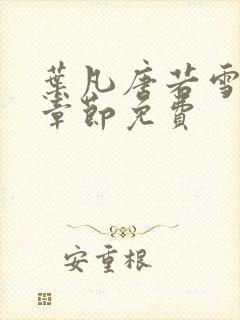 葉凡唐若雪
章節免費
安重根